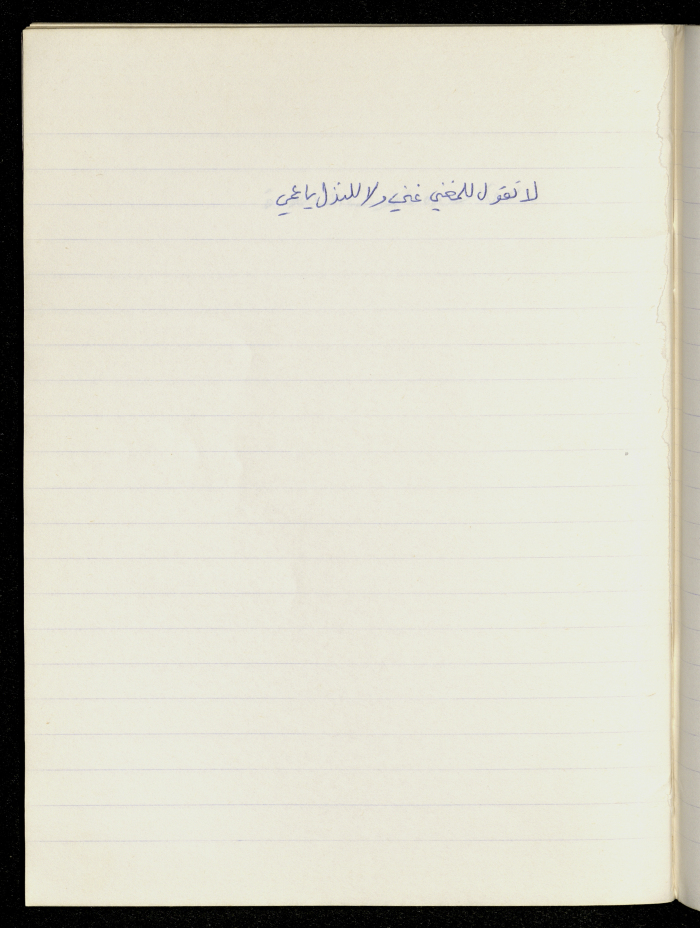 لا تقول للمغني غني ولا للنذل يا عمي